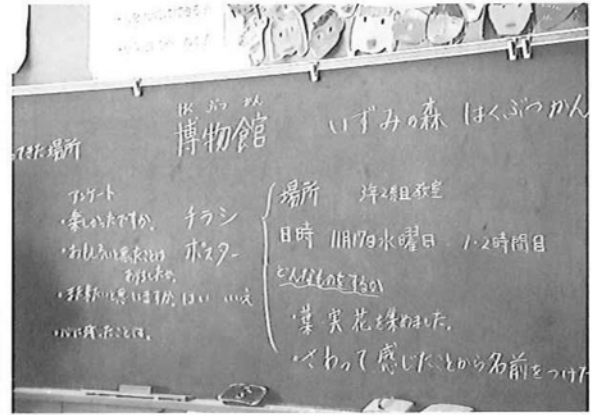 はく ぶつ かん
博物館
いずみの森 はくぶつかん
てきた場所
アンケート
・楽しかったですか。
・おもしろいと思ったことは
ありましたか。
・また来たいと思いますか。はい いいえ
・心に残ったことは。
チラシ
ポスター
場所 3年2組教室
日時 11月17日水曜日 1・2時間目
どんなものをするか
・葉 実 花を集めました。
・さわって感じたことから名前をつけた